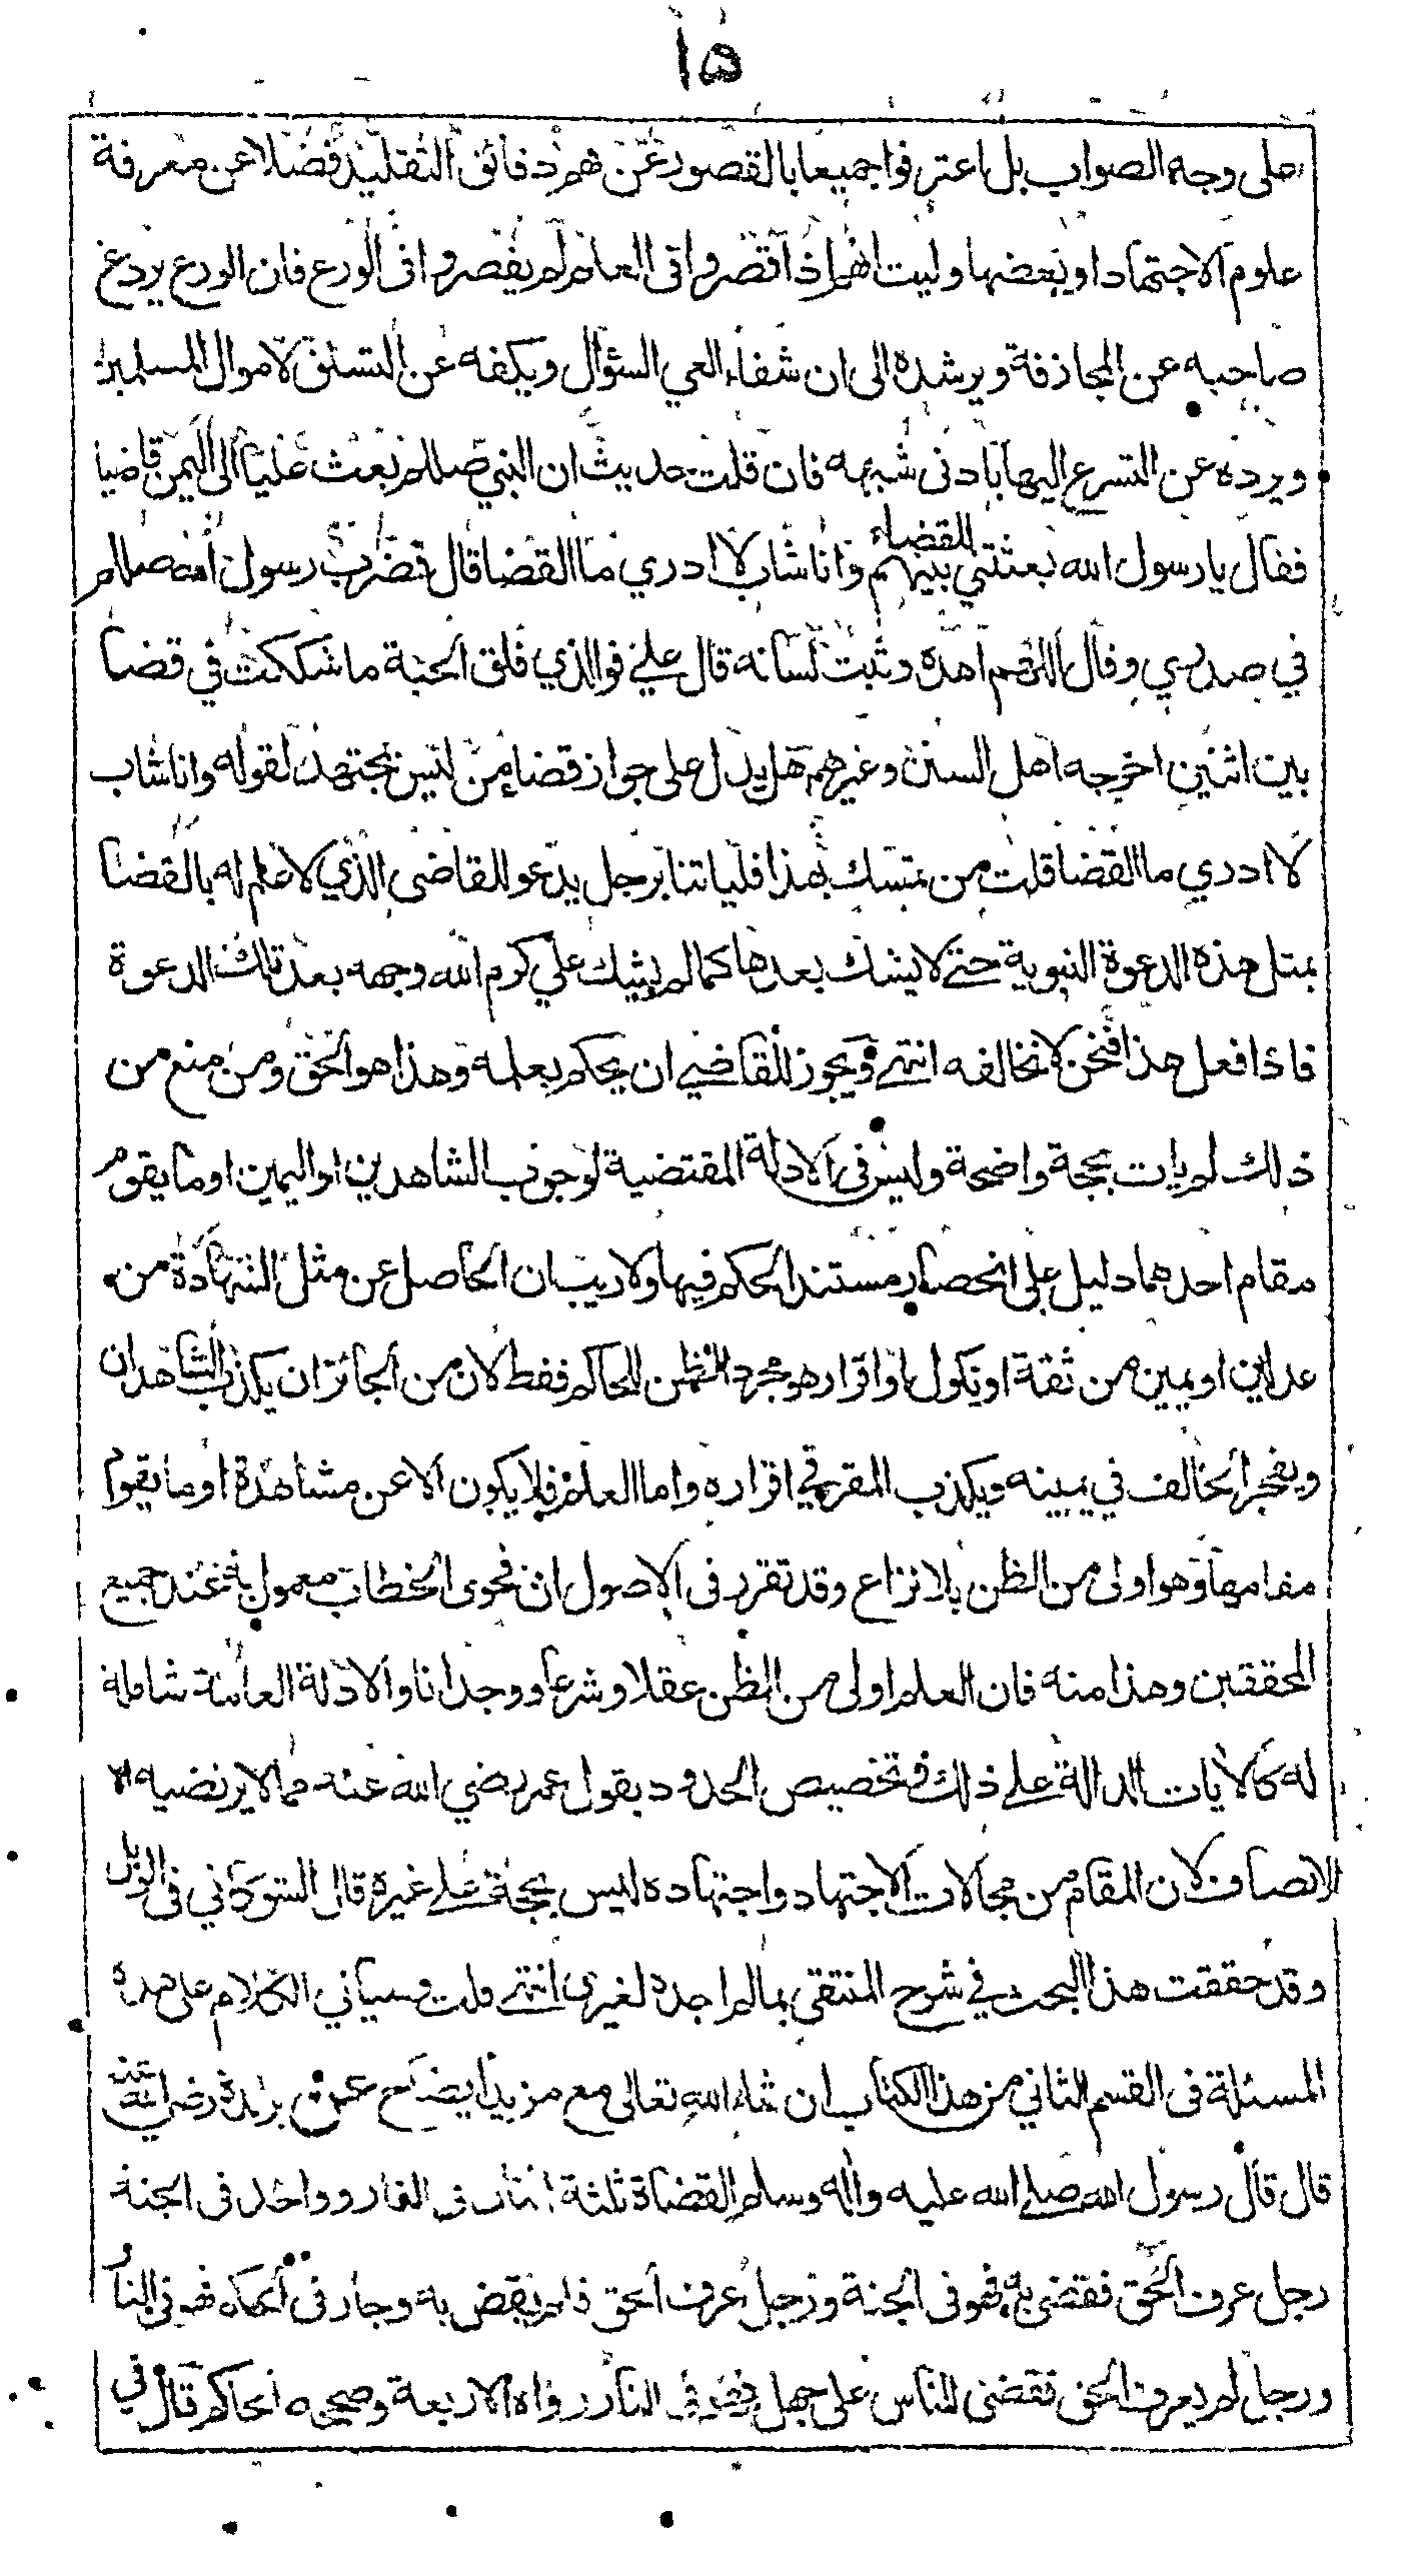 ١٥
على وجه الصواب بل اعترفوا جميعا بالقصور عن فهم دقائق التقليد فضلا عن معرفة
علوم الاجتهاد او بعضها وليت انهم اذا قصروا فى العلم لم يقصروا فى الورع فان الورع يردع
صاحبه عن المجازفة ويرشده الى ان شفاء العي السؤال ويكفه عن التسلق لاموال المسلمين
ويرده عن التسرع اليها بادنى شبهه فان قلت حديث ان النبي صللم بعث عليا الى اليمن قاضيا
فقال يا رسول الله بعثتني بينهم للقضاء وانا شاب لا ادري ما القضا قال فضرب رسول الله صللم
في صدري وقال اللهم اهده وثبت لسانه قال علي فوالذي فلق الحبة ما شككت في قضا
بين اثنين اخرجه اهل السنن وغيرهم هل يدل على جواز قضاء من ليس بمجتهد لقوله وانا شاب
لا ادري ما القضا قلت من تمسك بهذا فلياتنا برجل يدعو للقاضى الذي لا علم له بالقضا
بمثل هذه الدعوة النبوية حتى لا يشك بعدها كما لم يشك علي كرم الله وجهه بعد تلك الدعوة
فاذا فعل هذا فنحن لا نخالفه انتهى ويجوز للقاضي ان يحكم بعلمه وهذا هو الحق ومن منع من
ذلك لم يات بحجة واضحة وليس فى الادلة المقتضية لوجوب الشاهدين او اليمين او ما يقوم
مقام احدهما دليل على انحصار مستند الحكم فيها ولا ريب ان الحاصل عن مثل الشهادة من
عدلين او يمين من ثقة او نكول او اقرار هو مجرد الظن للحاكم فقط لان من الجائز ان يكذب الشاهدان
ويفجر الحالف في يمينه ويكذب المقر في اقراره واما العلم فلا يكون الا عن مشاهدة او ما يقوم
مقامها وهو اولى من الظن بلا نزاع وقد تقرر فى الاصول ان فحوى الخطاب معمول به عند جميع
المحققين وهذا منه فان العلم اولى من الظن عقلا وشرعا ووجدانا والادلة العامة شاملة
له كالايات الدالة على ذلك فتخصيص الحدود بقول عمر رضي الله عنه مما لا يرتضيه
الانصاف لان المقام من مجالات الاجتهاد واجتهاده ليس بحجة على غيره قال الشوكاني فى الوبل
وقد حققت هذا البحث في شرح المنتقى بما لم اجده لغيرى انتهى قلت وسياتي الكلام على هذه
المسئلة فى القسم الثاني من هذا الكتاب ان شاء الله تعالى مع مزيد ايضاح عن بريدة رضي الله عنه
قال قال رسول الله صلى الله عليه واله وسلم القضاة ثلثة اثنان فى النار وواحد فى الجنة
رجل عرف الحق فقضى به فهو فى الجنة ورجل عرف الحق فلم يقض به وجار فى الحكم فهو فى النار
ورجل لم يعرف الحق فقضى للناس على جهل فهو فى النار رواه الاربعة وصححه الحاكم قال في